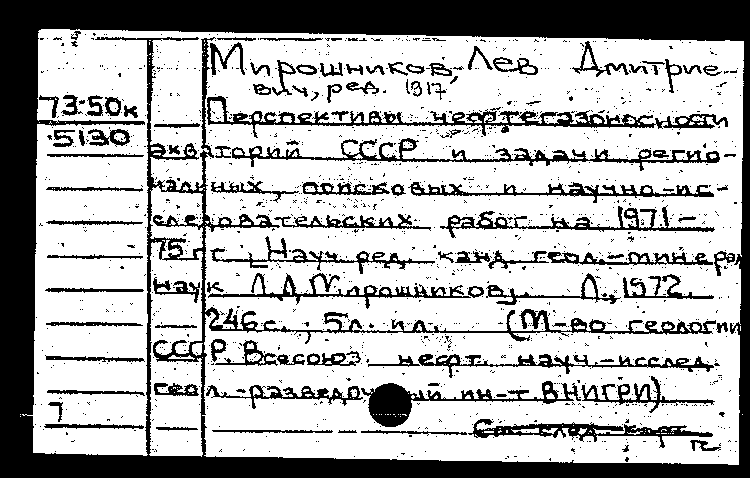 Мирошников, Лев Дмитрие-
вич, ред. 1917
73-50к
5130
Перспективы нефтегазоносности
акваторий СССР и задачи регио-
нальных, поисковых и научно-ис-
следовательских работ на 1971-
75 гг. [Науч. ред. канд. геол.-минерал.
наук Л.Д. Мирошников]. Л., 1972.
246 с.; 5 л. ил. (М-во геологии
СССР. Всесоюз. нефт. науч.-исслед.
геол.-разведочный ин-т ВНИГРИ).
7
См. след. карт.